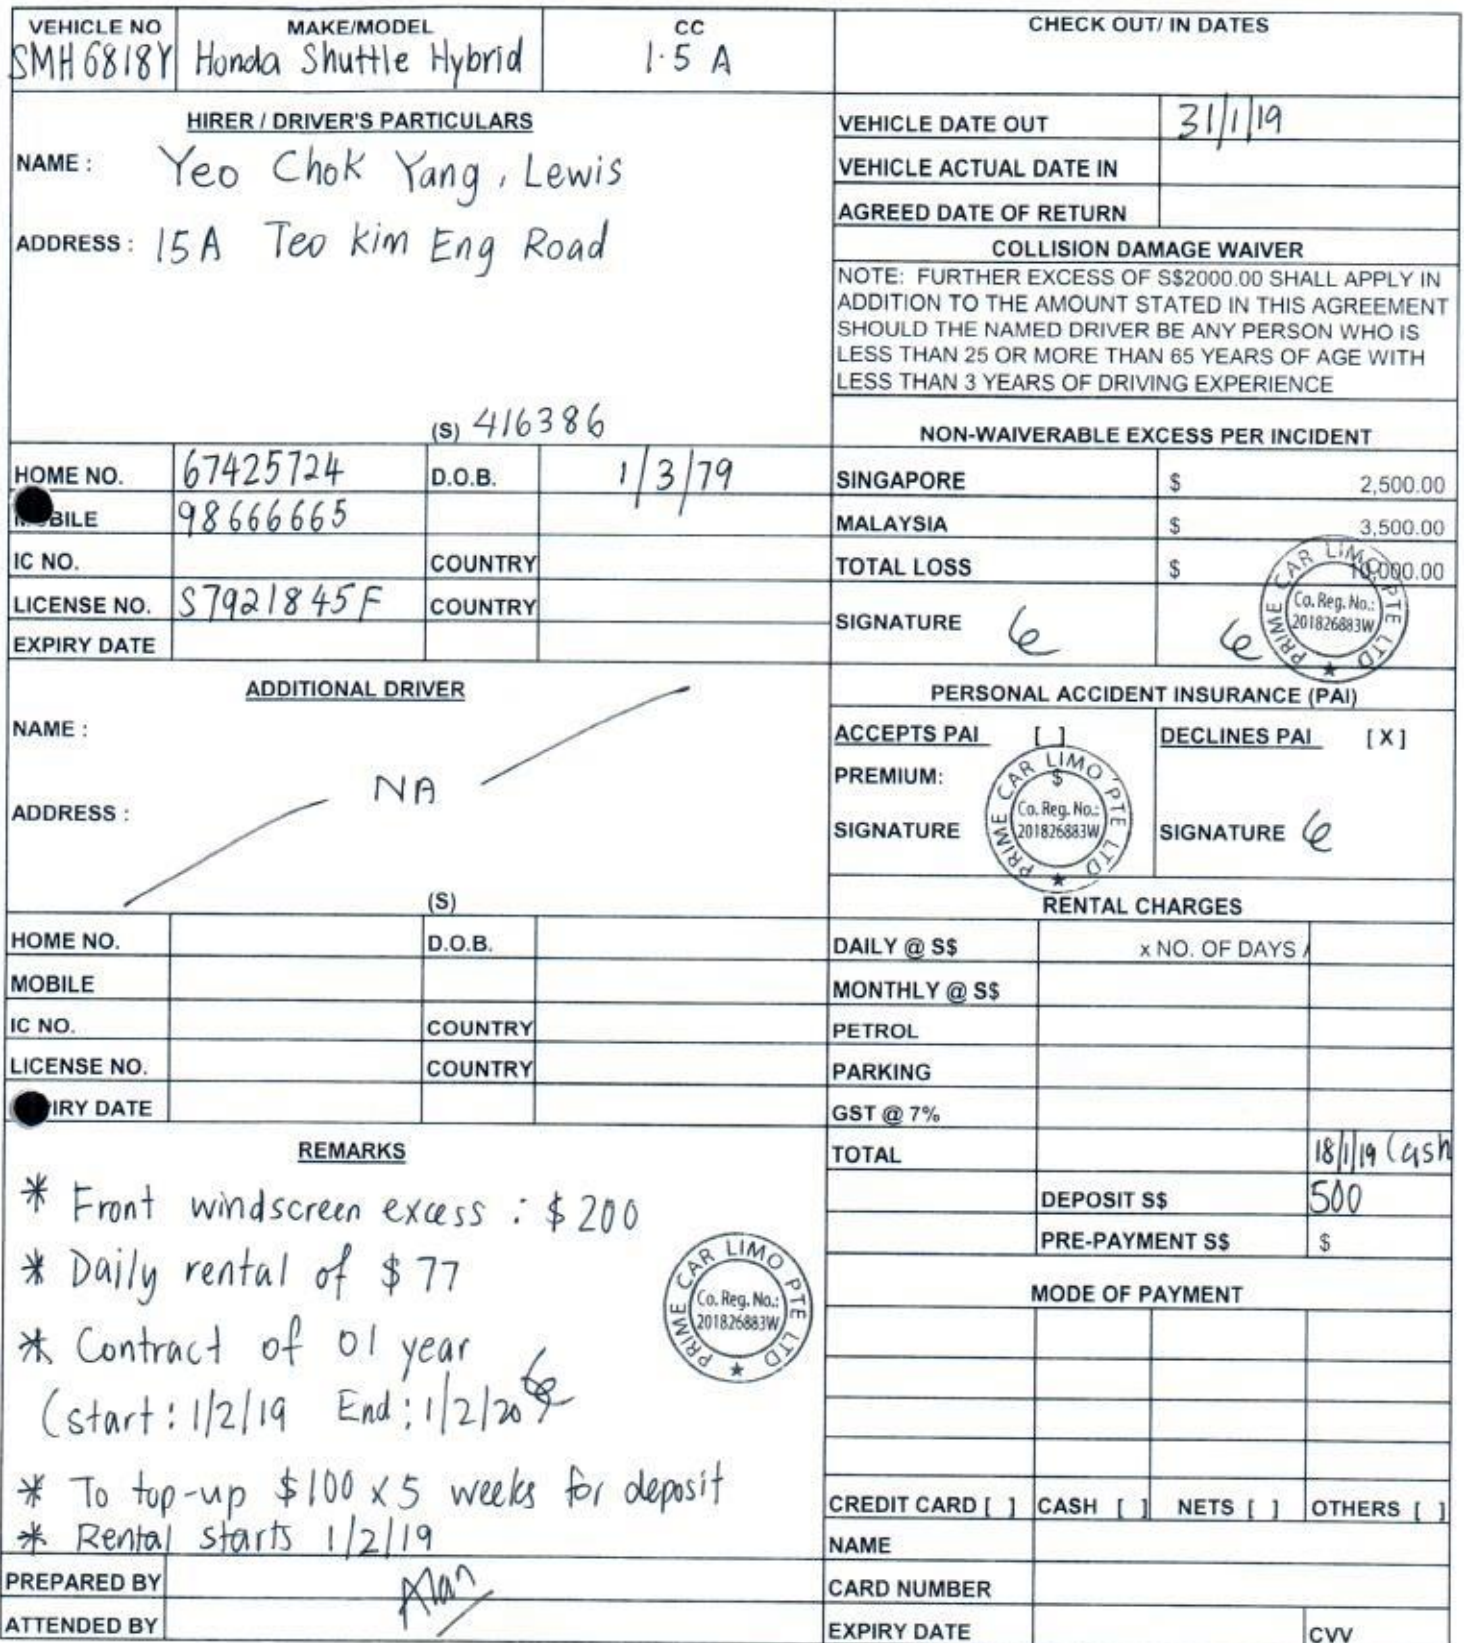 VEHICLE NO MAKE/MODEL CC CHECK OUT/ IN DATES
SMH6818Y Honda Shuttle Hybrid 1.5 A
HIRER / DRIVER'S PARTICULARS
NAME : Yeo Chok Yang, Lewis
ADDRESS : 15A Teo Kim Eng Road
(S) 416386
HOME NO. 67425724 D.O.B. 1/3/79
MOBILE 98666665
IC NO. COUNTRY
LICENSE NO. S7921845F COUNTRY
EXPIRY DATE
ADDITIONAL DRIVER
NAME :
NA
ADDRESS :
(S)
HOME NO. D.O.B.
MOBILE
IC NO. COUNTRY
LICENSE NO. COUNTRY
IRY DATE
REMARKS
* Front windscreen excess : $200
* Daily rental of $77
* Contract of 01 year
(start: 1/2/19 End: 1/2/20)
* To top-up $100 x 5 weeks for deposit
* Rental starts 1/2/19
PRIME CAR LIMO PTE LTD
Co. Reg. No.:
201826883W
PREPARED BY Alan
ATTENDED BY
VEHICLE DATE OUT 31/1/19
VEHICLE ACTUAL DATE IN
AGREED DATE OF RETURN
COLLISION DAMAGE WAIVER
NOTE: FURTHER EXCESS OF S$2000.00 SHALL APPLY IN
ADDITION TO THE AMOUNT STATED IN THIS AGREEMENT
SHOULD THE NAMED DRIVER BE ANY PERSON WHO IS
LESS THAN 25 OR MORE THAN 65 YEARS OF AGE WITH
LESS THAN 3 YEARS OF DRIVING EXPERIENCE
NON-WAIVERABLE EXCESS PER INCIDENT
SINGAPORE $ 2,500.00
MALAYSIA $ 3,500.00
TOTAL LOSS $ 10,000.00
SIGNATURE
PRIME CAR LIMO PTE LTD
Co. Reg. No.:
201826883W
PERSONAL ACCIDENT INSURANCE (PAI)
ACCEPTS PAI [ ] DECLINES PAI [ X ]
PREMIUM: $
SIGNATURE SIGNATURE
PRIME CAR LIMO PTE LTD
Co. Reg. No.:
201826883W
RENTAL CHARGES
DAILY @ S$ x NO. OF DAYS /
MONTHLY @ S$
PETROL
PARKING
GST @ 7%
TOTAL 18/1/19 Cash
DEPOSIT S$ 500
PRE-PAYMENT S$ $
MODE OF PAYMENT
CREDIT CARD [ ] CASH [ ] NETS [ ] OTHERS [ ]
NAME
CARD NUMBER
EXPIRY DATE CVV